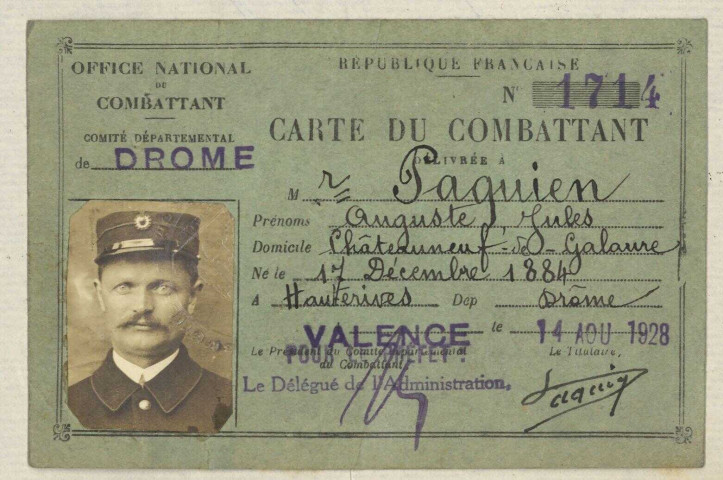 OFFICE NATIONAL
DU
COMBATTANT
COMITÉ DÉPARTEMENTAL
de DROME
RÉPUBLIQUE FRANÇAISE
N° 1714
CARTE DU COMBATTANT
DÉLIVRÉE A
M r Paquien
Prénoms Auguste Jules
Domicile Châteauneuf-de-Galaure
Né le 17 Décembre 1884
A Hauterives Dép Drôme
VALENCE le 14 AOU 1928
Le Président du Comité Départemental
du Combattant,
POUR LE PRÉFET :
Le Délégué de l'Administration,
Le Titulaire,
Paquien